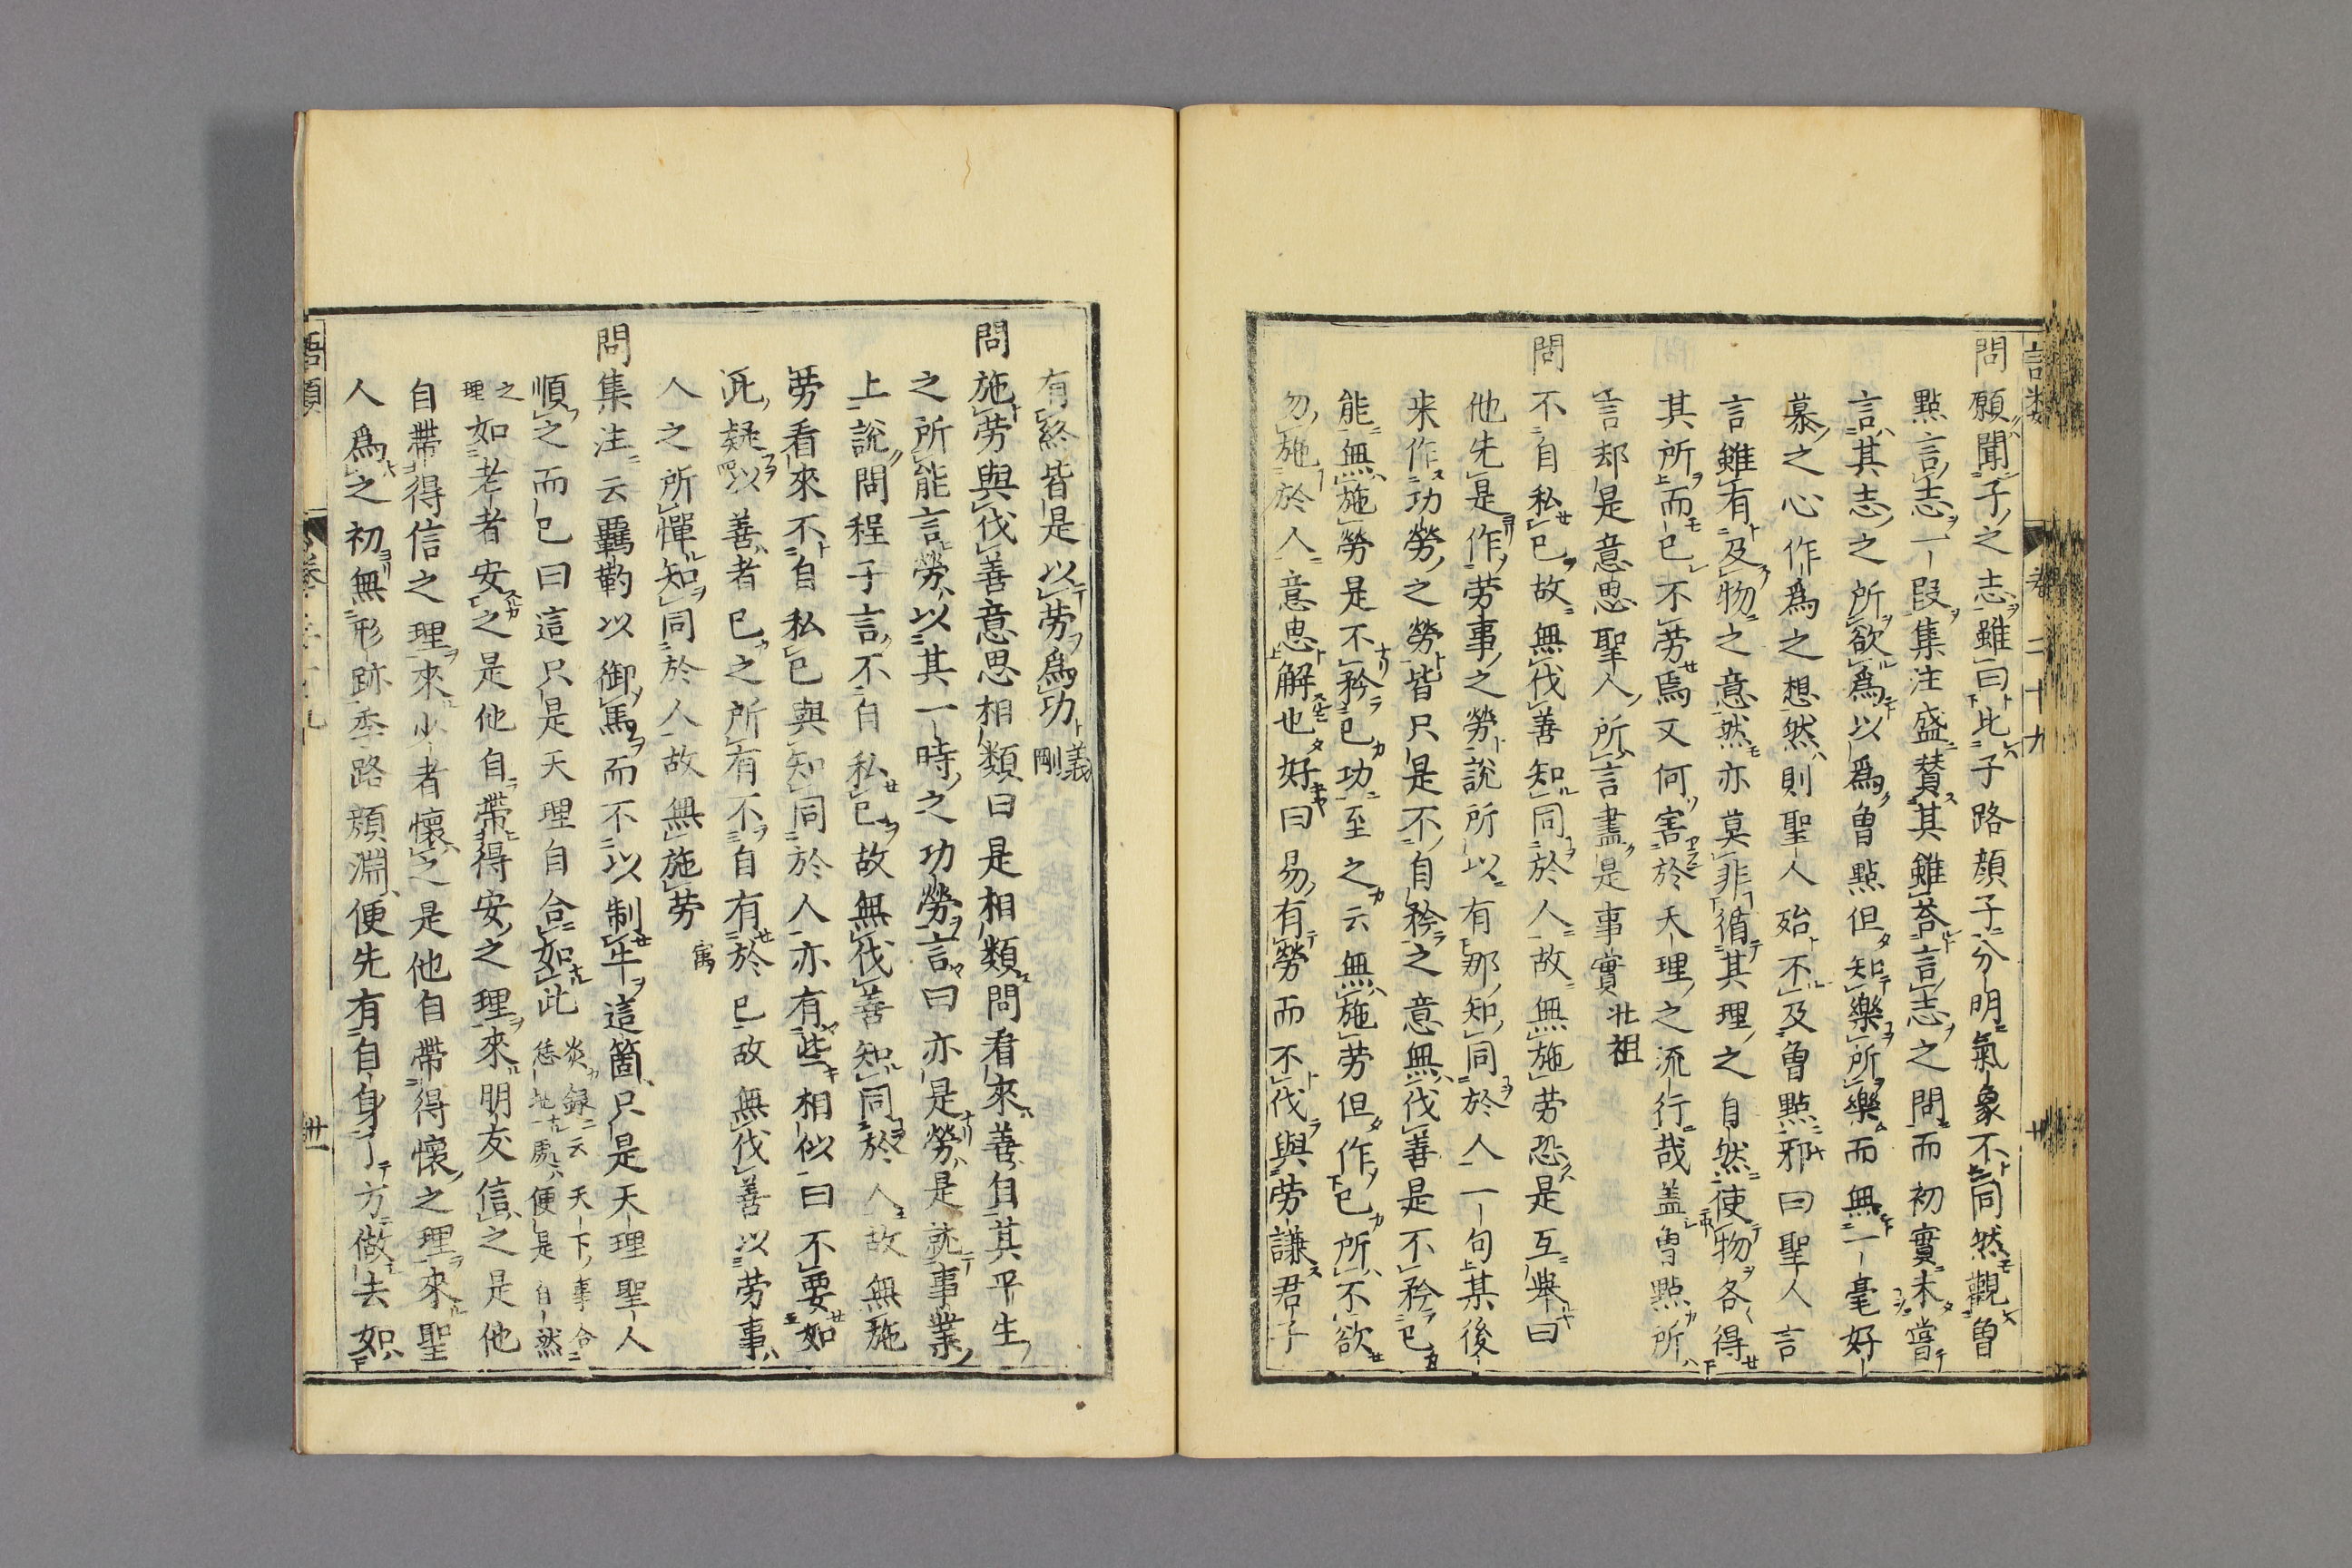 語類 卷二十九 卅
問願聞子之志雖曰此子路顏子分明氣象不同然觀曽
點言志一段集注盛賛其雖荅言志之問而初實未嘗
言其志之所欲爲以爲曽點但知樂所樂而無一毫好
慕之心作爲之想然則聖人殆不及曽點邪曰聖人言
言雖有及物之意然亦莫非循其理之自然使物各得
其所而已不劳焉又何害於天理之流行哉盖曽點所
言却是意思聖人所言盡是事實壮祖
問不自私已故無伐善知同於人故無施劳恐是互舉曰
他先是作劳事之勞說所以有那知同於人一句某後
来作功勞之勞皆只是不自矜之意無伐善是不矜已
能無施勞是不矜已功至之云無施劳但作已所不欲
勿施於人意思解也好曰易有勞而不伐與劳謙君子
有終皆是以劳爲功義剛
問施劳與伐善意思相類曰是相類問看來善自其平生
之所能言勞以其一時之功勞言曰亦是勞是就事業
上說問程子言不自私已故無伐善知同於人故無施
劳看來不自私已與知同於人亦有些相似曰不要如
此疑以善者已之所有不自有於已故無伐善以劳事
人之所憚知同於人故無施劳㝢
問集注云羈靮以御馬而不以制牛這箇只是天理聖人
順之而已曰這只是天理自合如此炎録云天下事合恁地處便是自然
之理如老者安之是他自帶得安之理來朋友信之是他
自帶得信之理來少者懷之是他自帶得懷之理來聖
人爲之初無形跡季路顏淵便先有自身了方做去如
語類 卷二十九 卅一